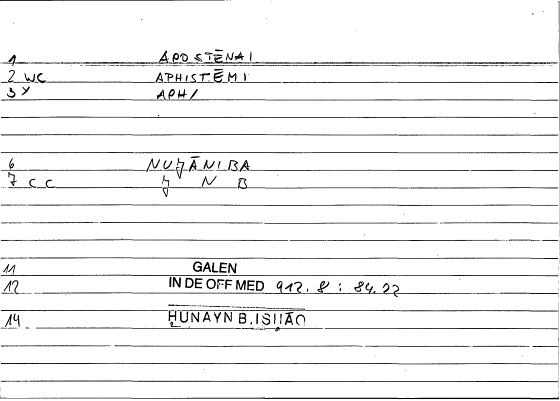 1 APOSTĒNAI
2 WC APHISTĒMI
3 Y APH/
6 NUǦĀNIBA
7 CC Ǧ N B
11 GALEN
12 IN DE OFF MED 912.8 : 84.22
14 ḤUNAYN B.ISḤĀQ